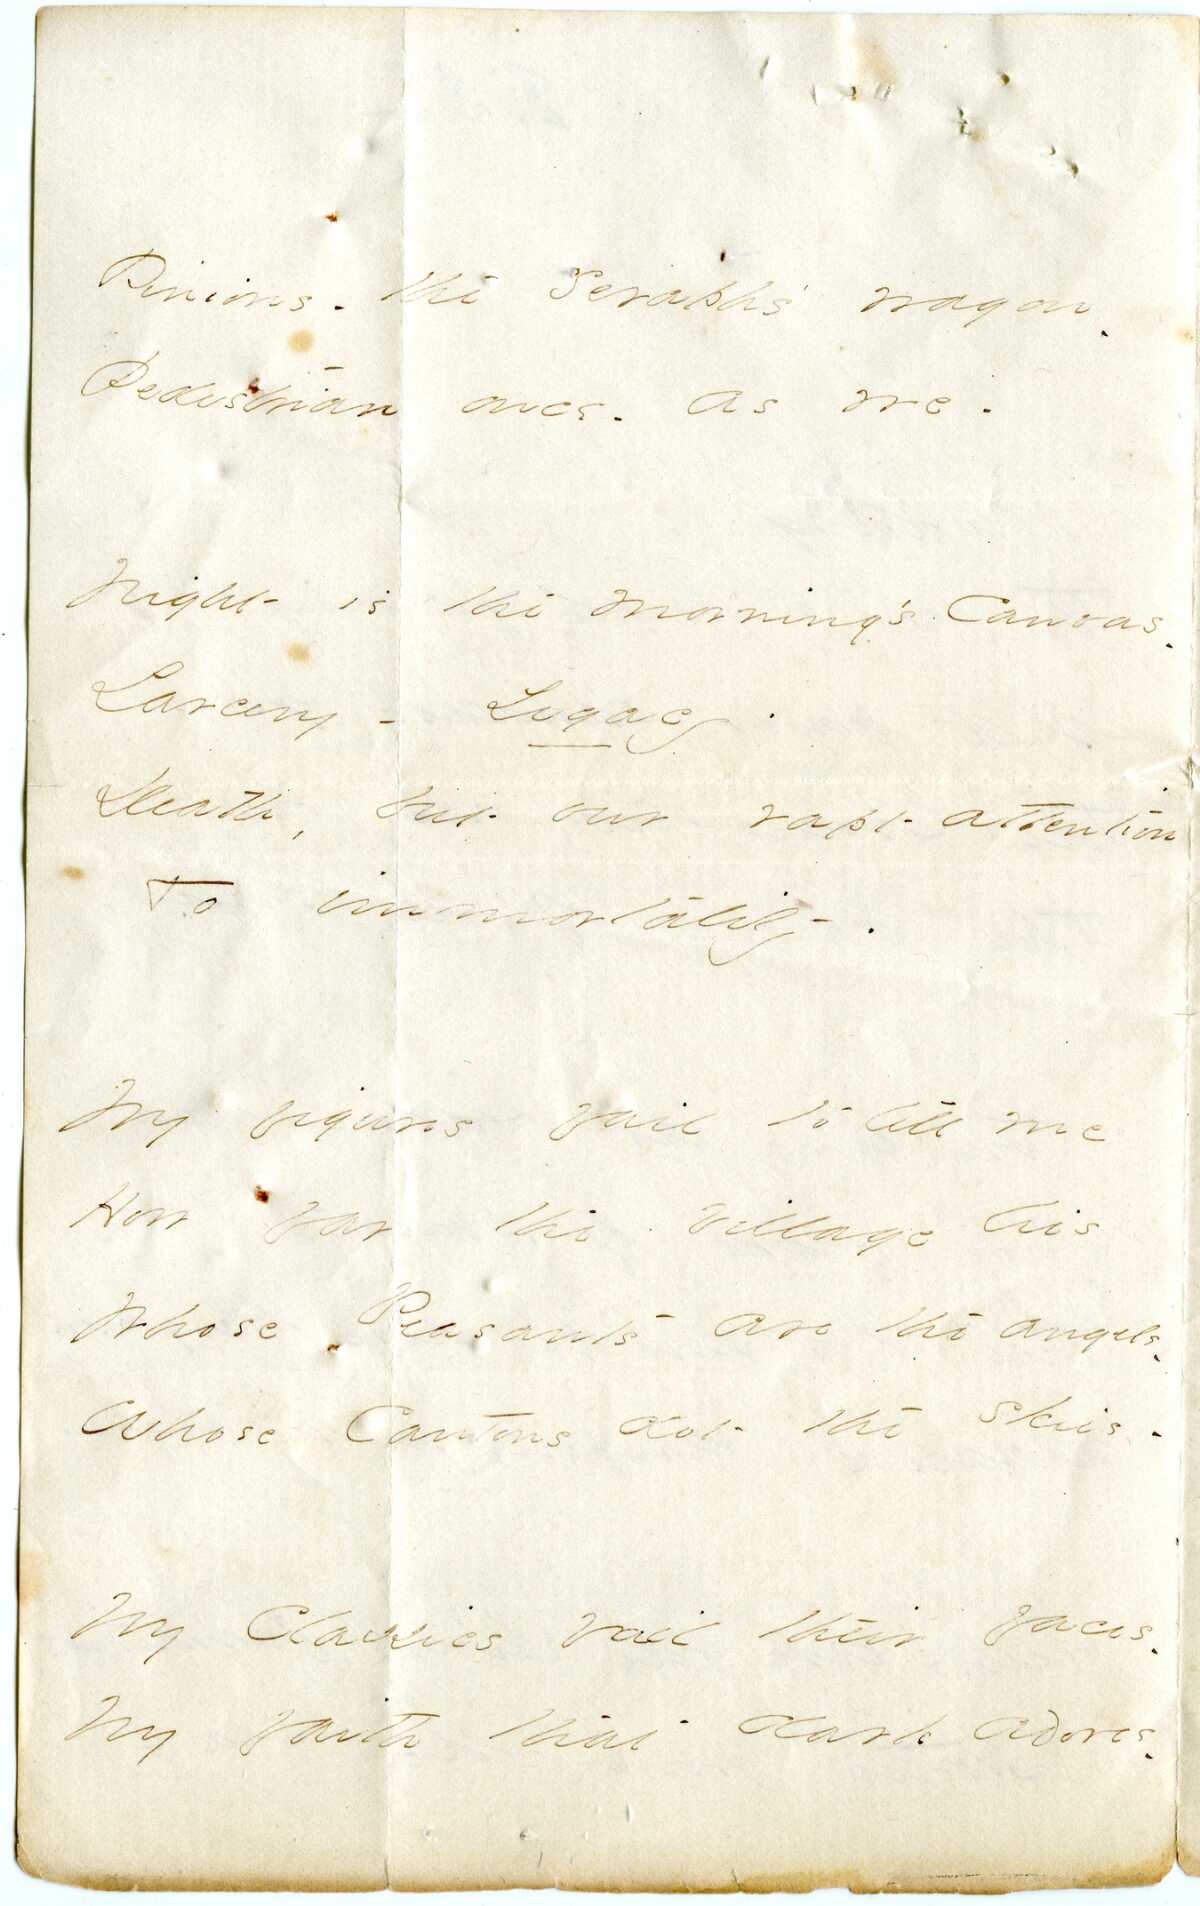 Pinions - the Seraphs' wagon -
Pedestrian once - as we -
Night is the morning's Canvas -
Larceny - Legacy -
Death, but our rapt attention
To immortality -
My figures fail to tell me
How far the village lies
Whose Peasants are the angels -
Whose Cantons dot the skies -
My Classics vail their faces -
My faith that dark adores -